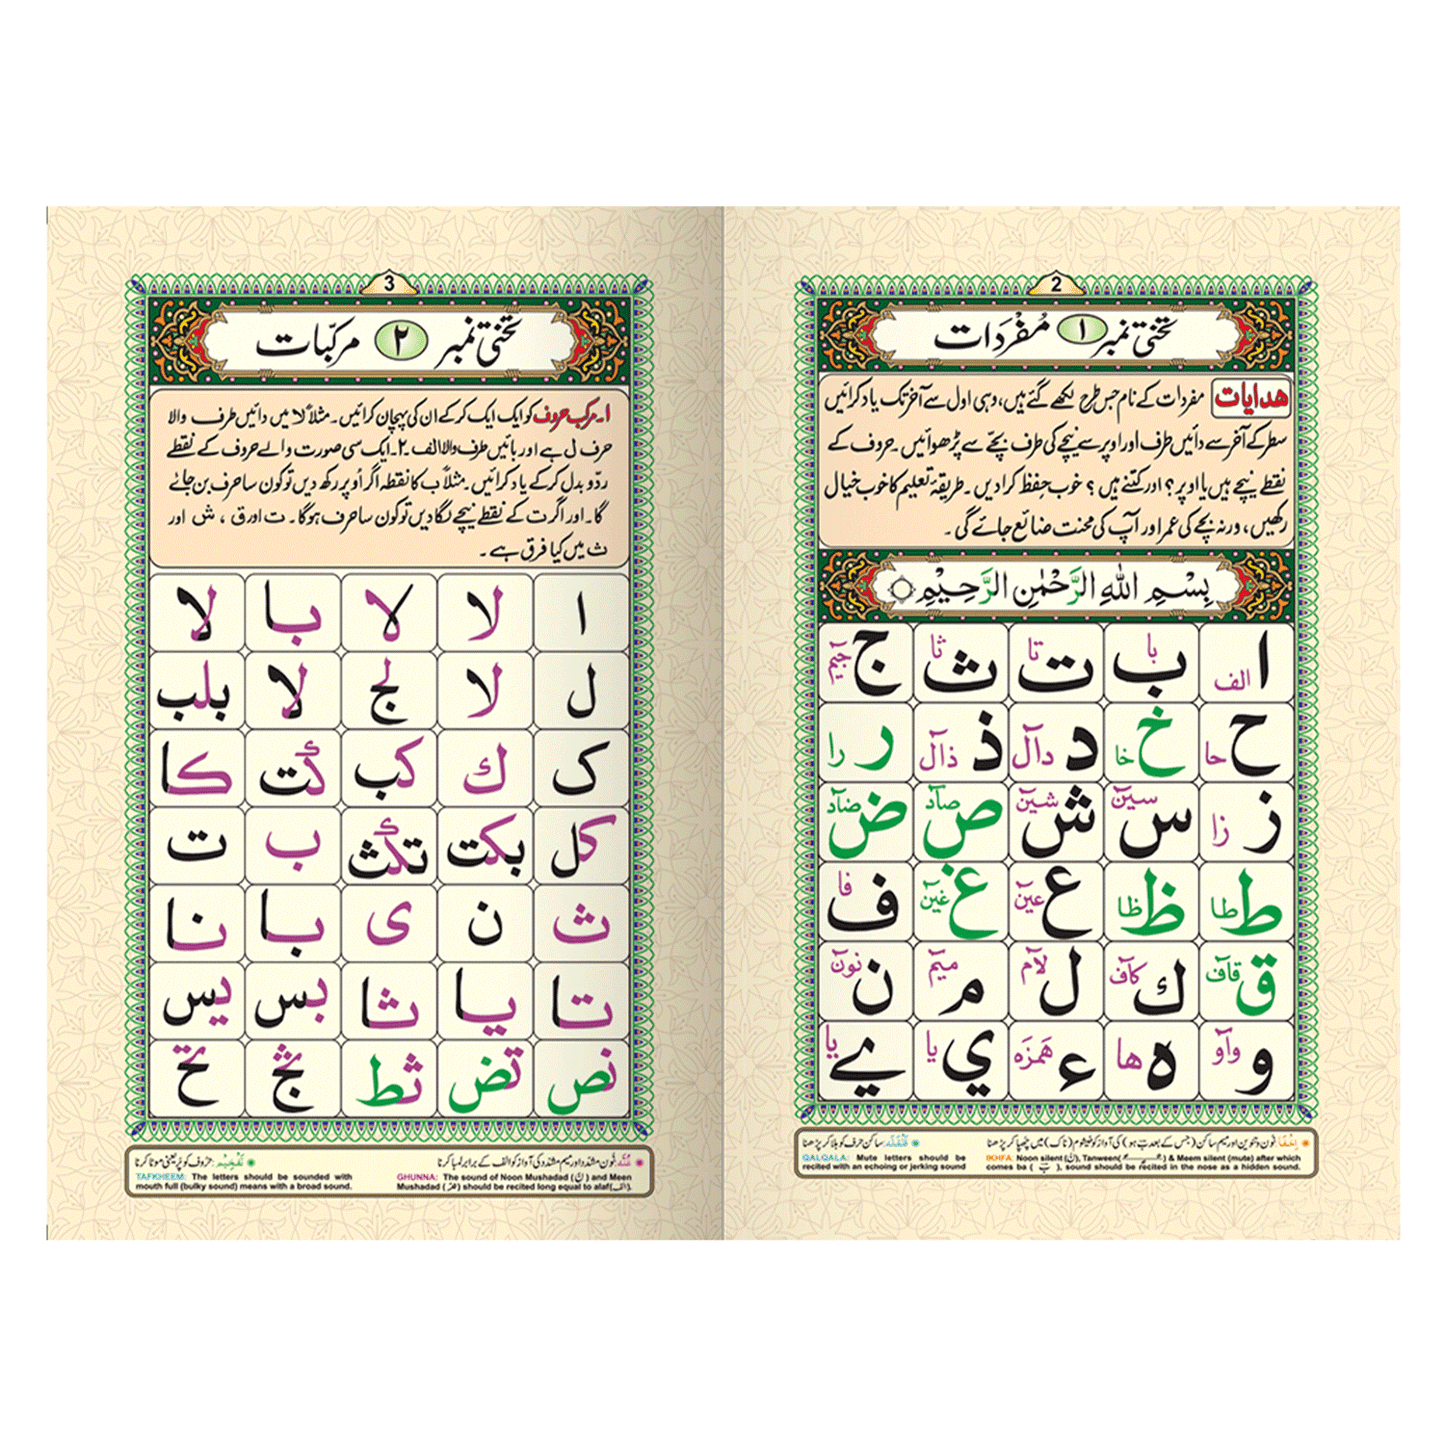 2
تختی نمبر ۱ مُفْرَدَات
هدایات مفردات کے نام جس طرح لکھے گئے ہیں، وہی اول سے آخر تک یاد کرائیں
سطر کے آخر سے دائیں طرف اور اوپر سے نیچے کی طرف بچّے سے پڑھوائیں۔ حروف کے
نقطے نیچے ہیں یا اوپر؟ اور کتنے ہیں؟ خوب حِفظ کرا دیں۔ طریقۂ تعلیم کا خوب خیال
رکھیں، ورنہ بچے کی عمر اور آپ کی محنت ضائع جائے گی۔
بِسْمِ اللهِ الرَّحْمٰنِ الرَّحِيْمِ
ا الف ب با ت تا ث ثا ج جیٓم
ح حا خ خا د دآل ذ ذآل ر را
ز زا س سیٓن ش شیٓن ص صآد ض ضآد
ط طا ظ ظا ع عیٓن غ غیٓن ف فا
ق قآف ك کآف ل لآم م میٓم ن نوٓن
و وآو ه ها ء هَمزَه ي یا ے یا
اِخْفَا: نون و تنوین اور میم ساکن (جس کے بعد ب ہو) کی آواز کو خیشوم (ناک) میں چھپا کر پڑھنا
IKHFA: Noon silent (نْ), Tanween( ) & Meem silent (mute) after which
comes ba (ب), sound should be recited in the nose as a hidden sound.
قَلْقَلَه: ساکن حرف کو ہلا کر پڑھنا
QALQALA: Mute letters should be
recited with an echoing or jerking sound
3
تختی نمبر ۲ مرکبّات
۱۔ مرکب حروف کو ایک ایک کر کے ان کی پہچان کرائیں۔ مثلاً لا میں دائیں طرف والا
حرف ل ہے اور بائیں طرف والا الف۔ ۲۔ ایک سی صورت والے حروف کے نقطے
ردّ و بدل کر کے یاد کرائیں۔ مثلاً ب کا نقطہ اگر اُوپر رکھ دیں تو کون سا حرف بن جائے
گا۔ اور اگر ت کے نقطے نیچے لگا دیں تو کون سا حرف ہو گا۔ ت اور ق، ش اور
ث میں کیا فرق ہے۔
ا لا لا با لا
ل لا لج لا بلب
ک ك کب کت کا
کل بکت تکث ب ت
ث ن ی با نا
تا یا ثا بس یس
نص تض ثط بج تح
غُنَّه: نون مشدّد اور میم مشدّد کی آواز کو الف کے برابر لمبا کرنا
GHUNNA: The sound of Noon Mushadad (نّ) and Meen
Mushadad (مّ) should be recited long equal to alaf(الف).
تَفْخِیْم: حروف کو پُر یعنی موٹا کرنا
TAFKHEEM: The letters should be sounded with
mouth full (bulky sound) means with a broad sound.